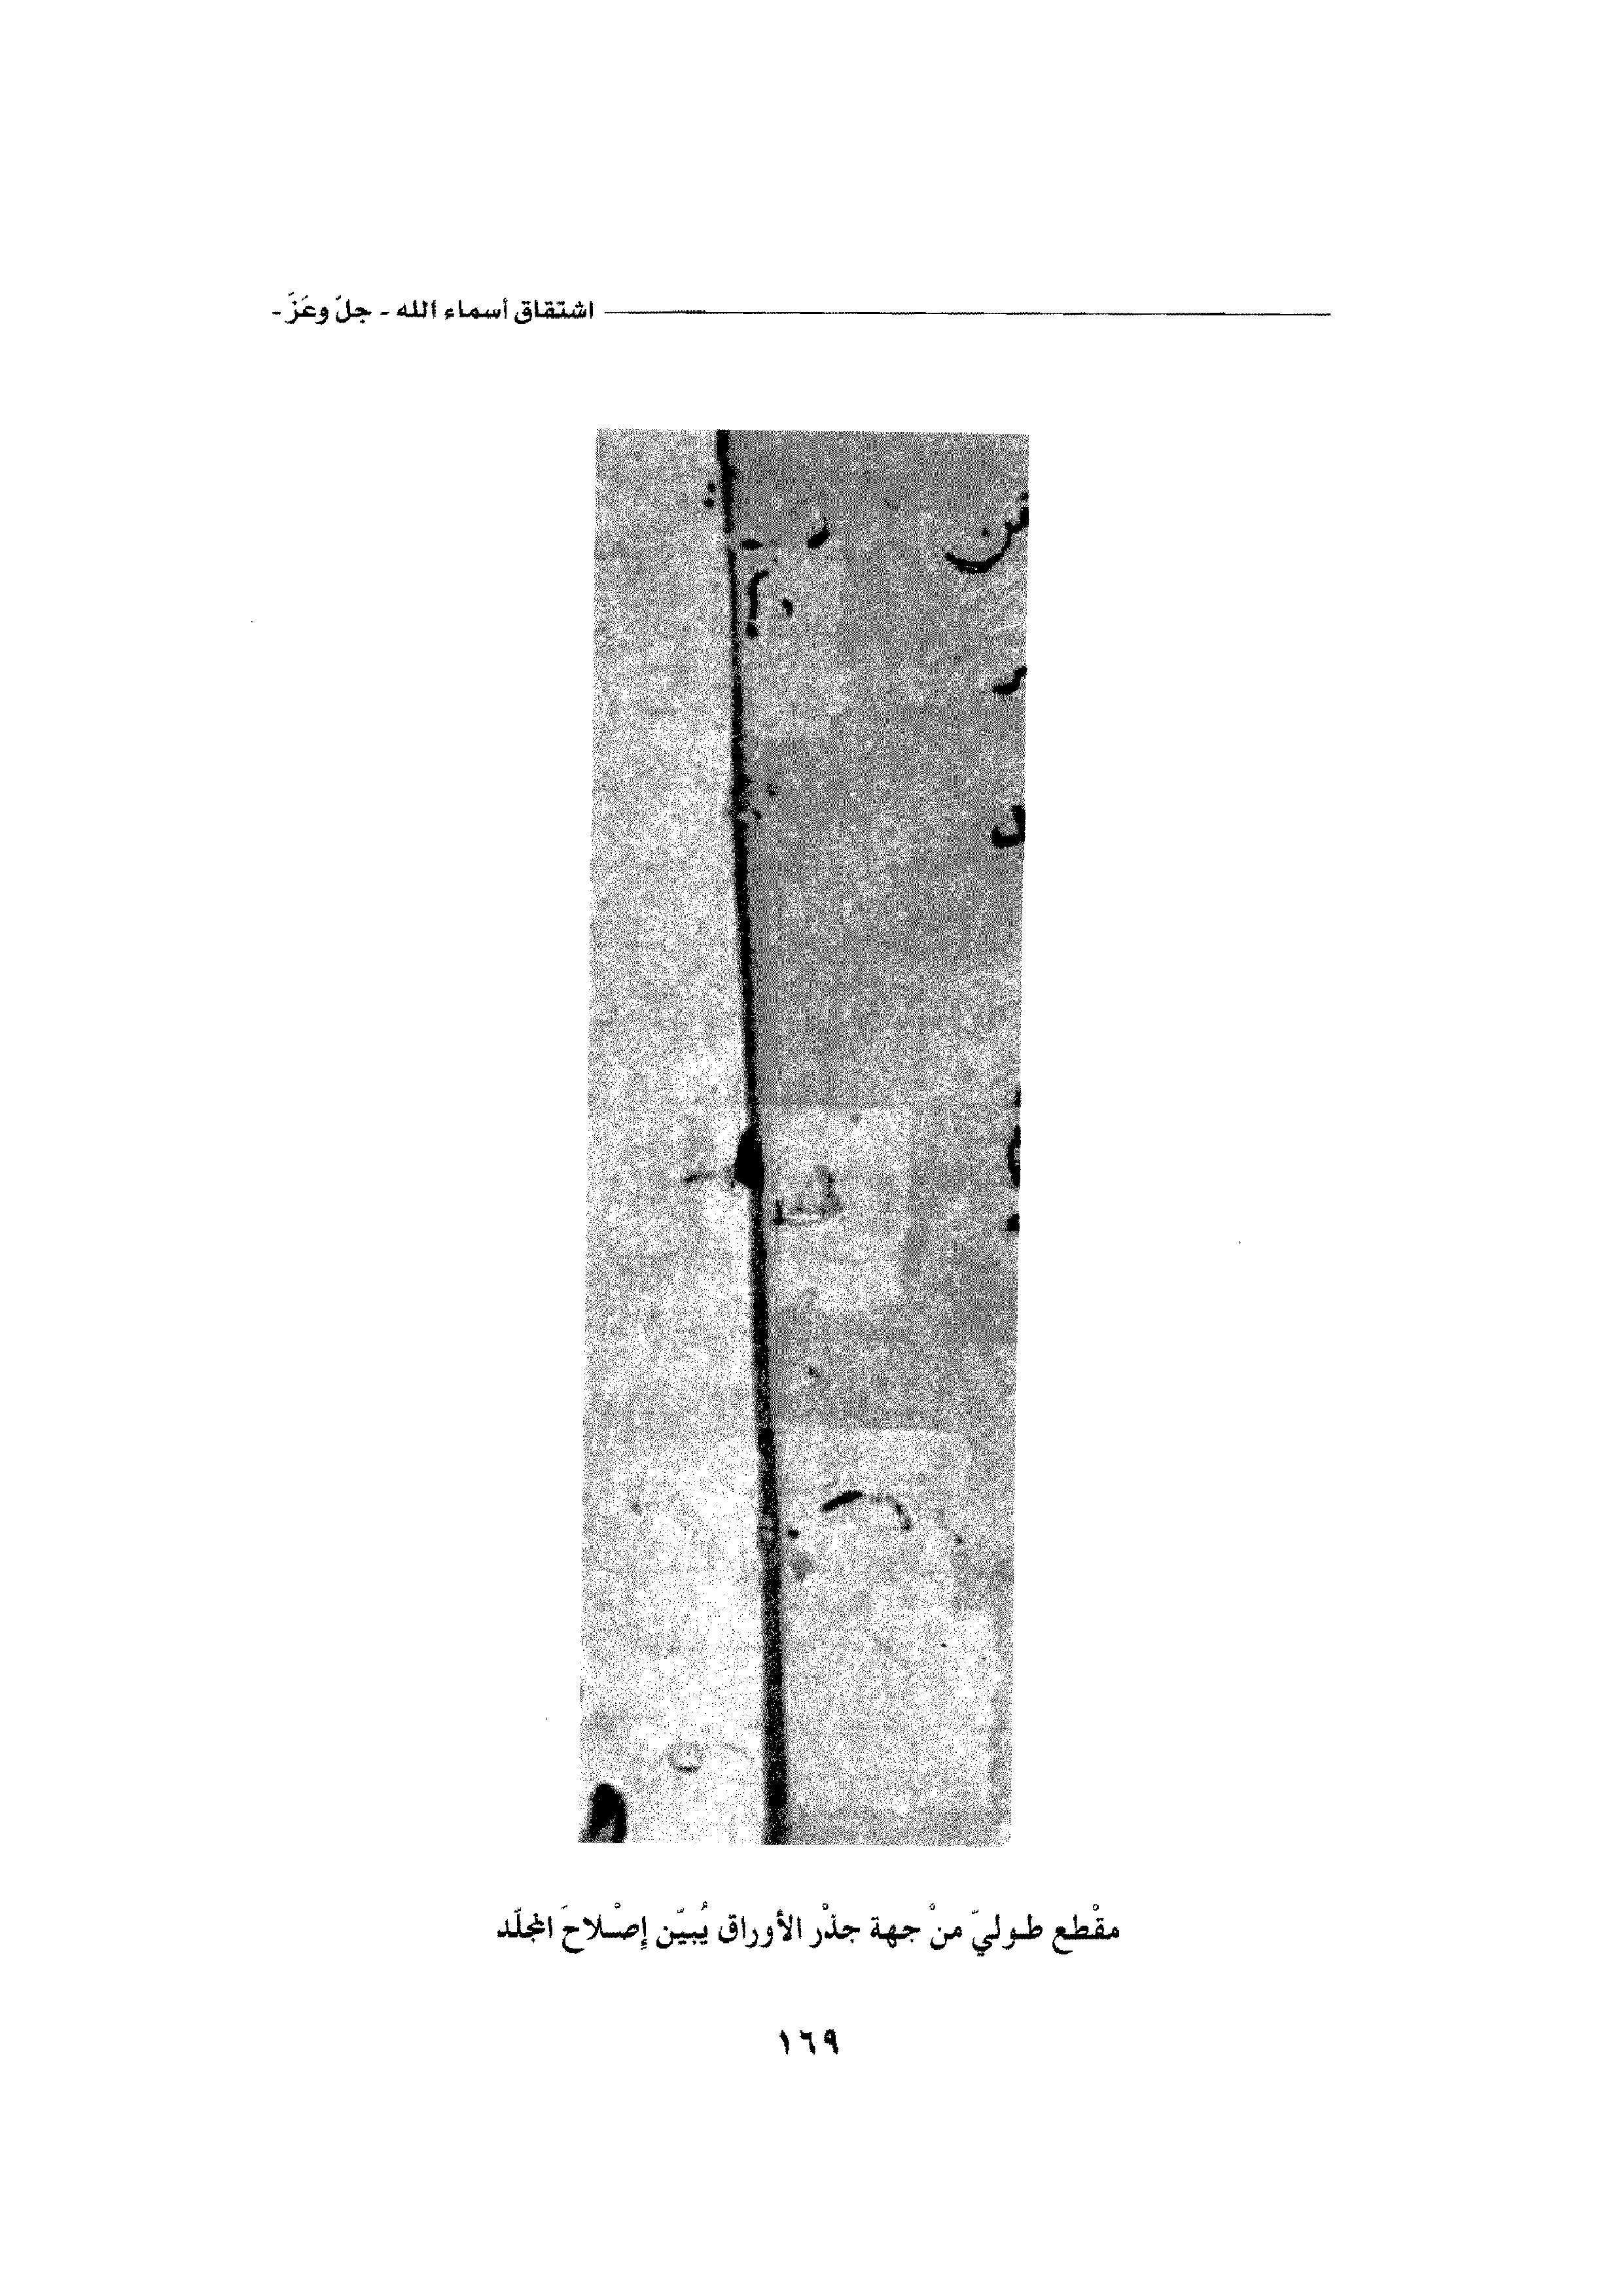 اشتقاق أسماء الله - جلّ وعَزّ -
مقْطع طوليّ منْ جهة جذْر الأوراق يُبيّن إِصْلاحَ المجلّد
١٦٩